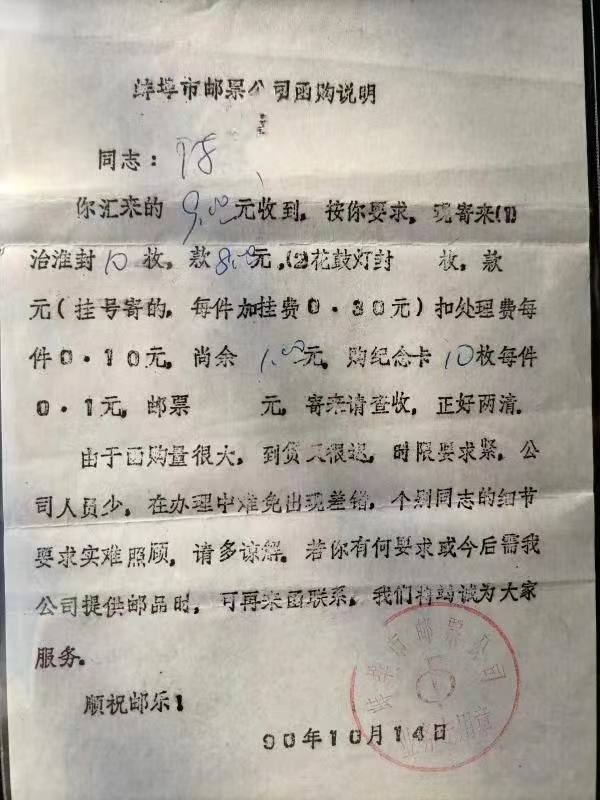 蚌埠市邮票公司函购说明
同志：
你汇来的 9.00 元收到，按你要求，现寄来(1)
治淮封 10 枚，款 8.00 元，(2)花鼓灯封 枚，款
元（挂号寄的，每件加挂费0·30元）扣处理费每
件0·10元，尚余 1.00 元，购纪念卡 10 枚每件
0·1元，邮票 元，寄来请查收，正好两清。
由于函购量很大，到货又很迟，时限要求紧，公
司人员少，在办理中难免出现差错，个别同志的细节
要求实难照顾，请多谅解。若你有何要求或今后需我
公司提供邮品时，可再来函联系，我们将竭诚为大家
服务。
顺祝邮乐！
蚌埠市邮票公司
90年10月14日